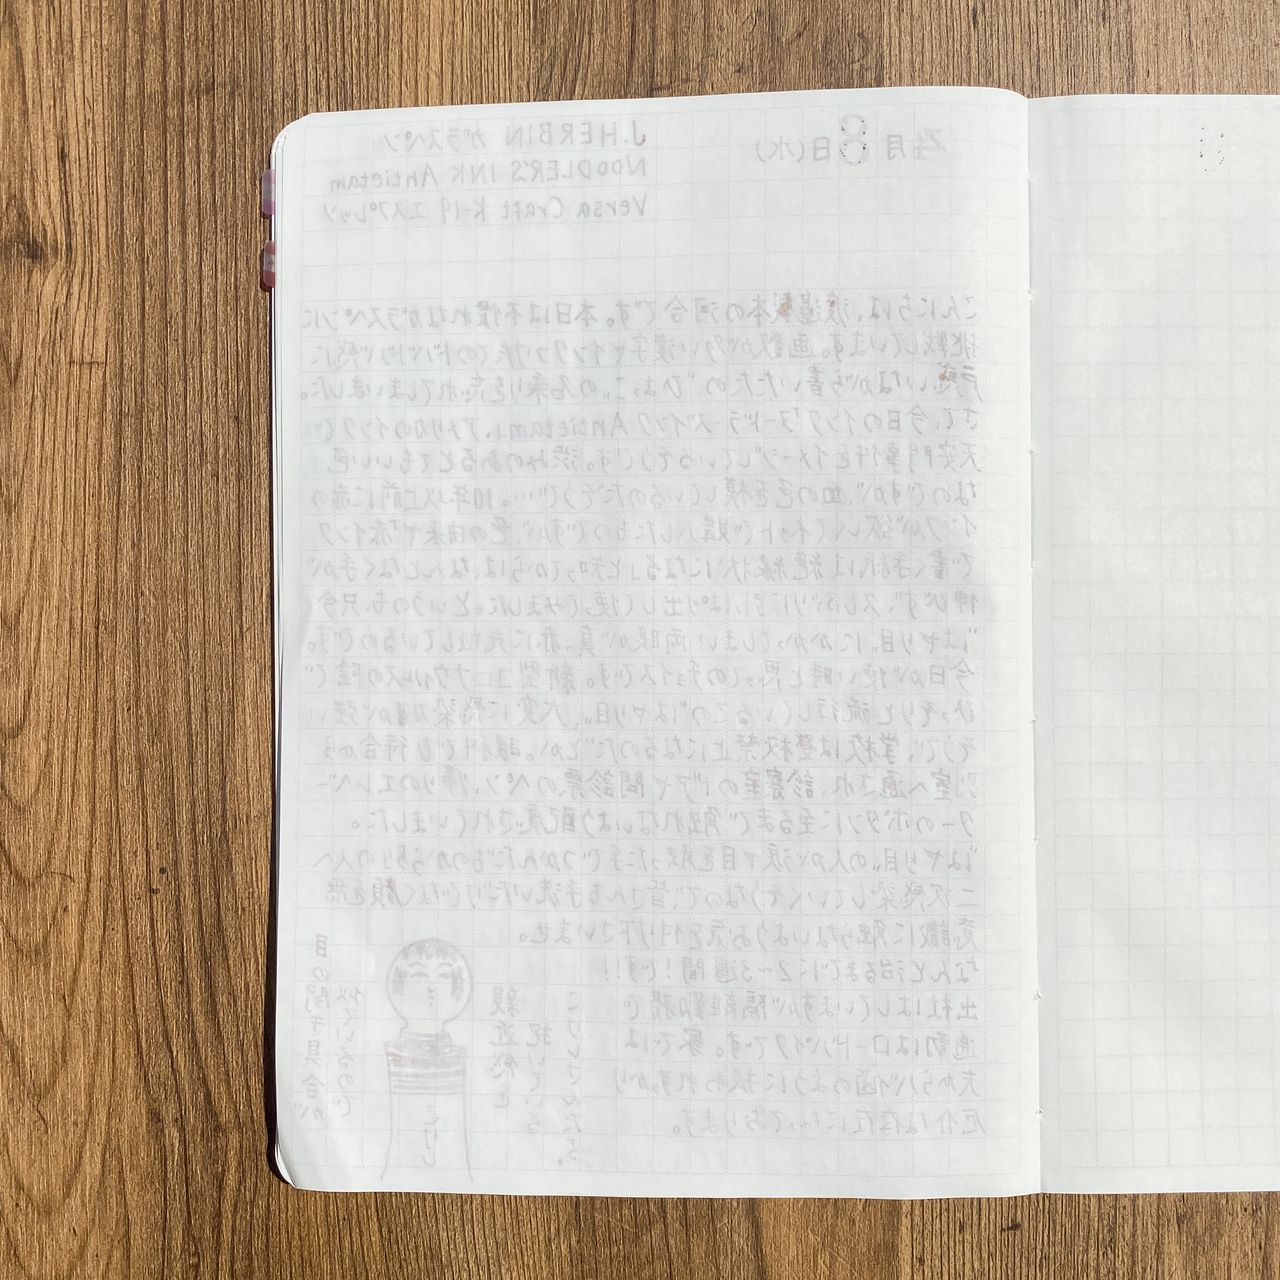 4月8日(水)
J.HERBIN ガラスペン
NOODLER'S INK Antietam
Versa Craft K-19 エスプレッソ
こんにちは、渡邉製本の河合です。本日は不慣れなガラスペンに
挑戦しています。画数が多い漢字やインクつけたてのドバドバ感に
戸惑いながら書いたため"ひよこ"の名乗りを忘れてしまいました。
さて、今日のインク「ヌードラーズインク Antietam」。アメリカのインクで
天安門事件をイメージしているそうです。渋みのあるとてもいい色
なのですが、血の色を模しているのだそうで…。10年以上前に赤の
インクが欲しくてネットで購入したものですが、色の由来や「赤インク
で書く手紙は絶縁状になる」と知ってからは、なんとなく手が
伸びず、久しぶりに引っぱり出して使ってみました。というのも、只今
"はやり目"にかかってしまい両眼が真っ赤に充血しているのです。
今日が使い時と思ってのチョイスです。新型コロナウィルスの陰で
ひっそりと流行しているこの"はやり目"、大変に感染力が強い
そうで、学校は登校禁止になるのだとか。眼科でも待合から
別室へ通され、診察室のドアや問診票のペン、帰りのエレベー
ターのボタンに至るまで触れないよう配慮されていました。
"はやり目"の人が涙や目を触った手でつかんだものから別の人へ
二次感染していくそうなので、皆さんも手洗いだけでなく顔を無
意識に触らないようお気を付け下さいませ。
なんと治るまでに2〜3週間!です!!
出社はしていますが隔離勤務で
通勤はロードバイクです。家では
夫からバイ菌のように扱われ、すっかり
厄介な存在になっております。
こけしさんたち。
親近感を
抱いている
こけし
似ているので
目の開き具合が